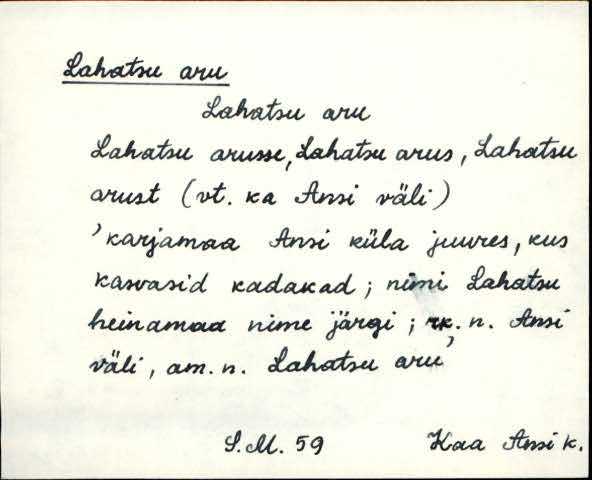 Lahatsu aru
Lahatsu aru
Lahatsu arusse, Lahatsu arus, Lahatsu
arust (vt. ka Ansi väli)
'karjamaa Ansi küla juures, kus
kasvasid kadakad; nimi Lahatsu
heinamaa nime järgi; rk. n. Ansi
väli, am. n. Lahatsu aru'
S.M. 59 Kaa Ansi k.